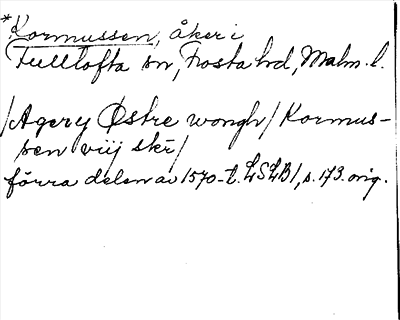 *Kormussen, åker i
Fulltofta sn, Frosta hd, Malm. l.
/Agery Østre wongh/ Kormus-
sen viij skr/
förra delen av 1570-t. LSLB1, s. 173. orig.